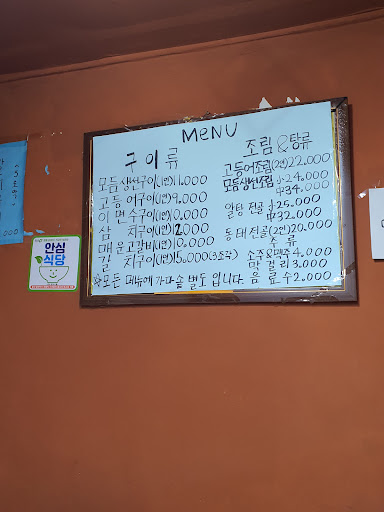 MENU
구이류
모듬생선구이(1인)11.000
고등어구이(1인)9.000
이면수구이(1인)10.000
삼치구이(1인)12000
매운고갈비(1인)10.000
갈치구이(1인)15.000(3토막)
조림&탕류
고등어조림(2인)22.000
모듬생선조림 小24.000
中34.000
알탕전골 小25.000
中32.000
동태전골(2인)20.000
주류
소주&맥주4.000
막걸리3.000
음료수2.000
※모든 메뉴에 가마솥밥 별도입니다.
안심
식당